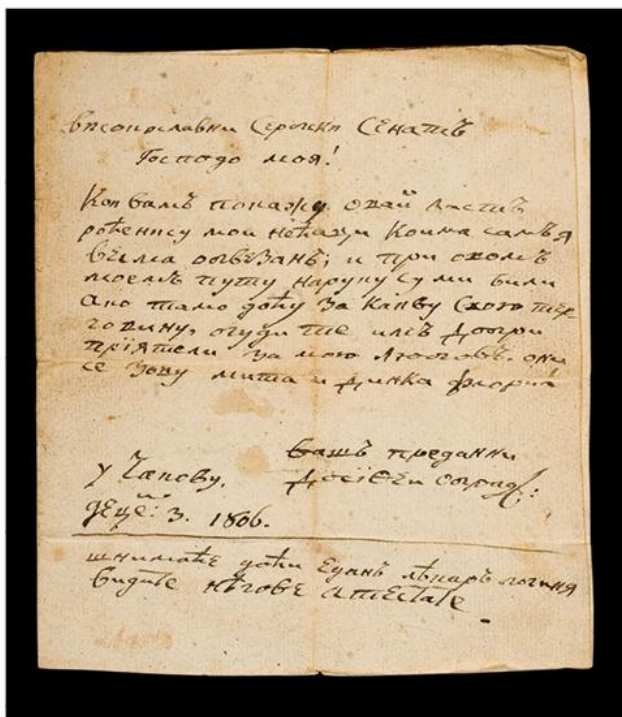 високославни Сербски Сенатъ
Господо моя!
Кои вамъ покажу овай листъ
рођениcу мои нећаци коима самъ я
весма обвезанъ; и при овомъ
моемъ путу наруку су ми били
ако тамо дођу за какву свою тер-
говину, будите имъ добри
пріятели за мою любовъ. они
се зову мита и Динка
вашъ преданни
у Досіѳеи
Деце: 3. 1806.
шњима ће доћи єданъ лѣкаръ
видите нѣгове атестате